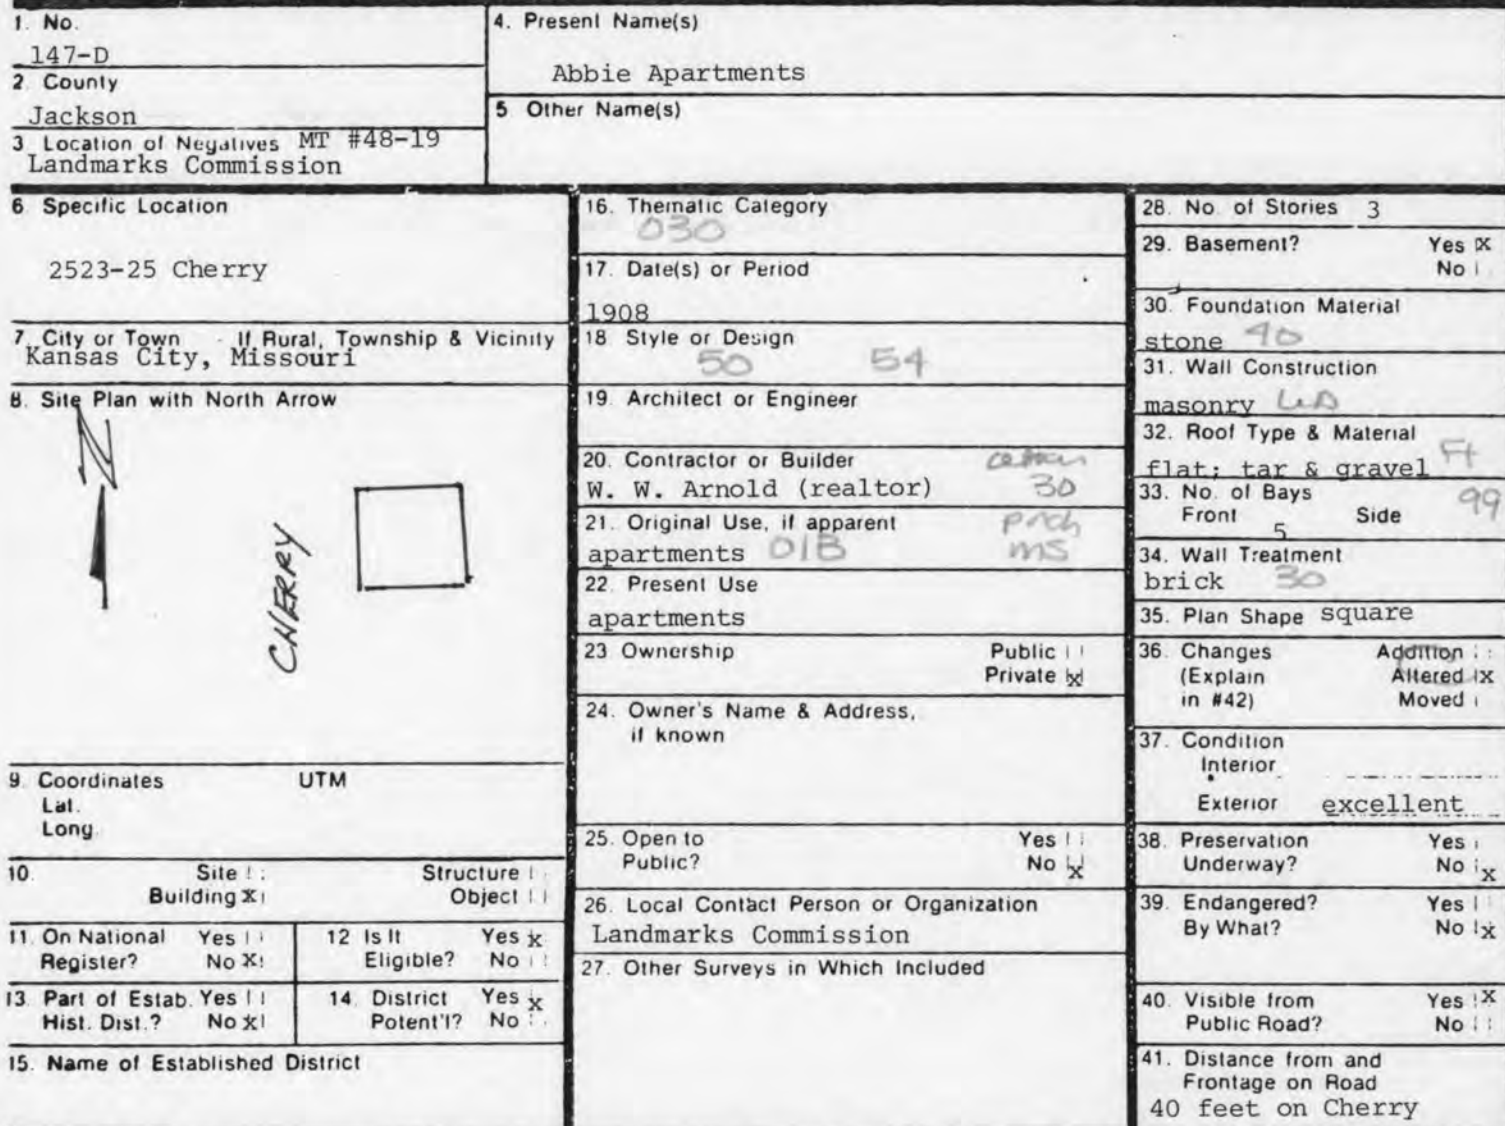 1. No.
147-D
2. County
Jackson
3 Location of Negatives MT #48-19
Landmarks Commission
4. Present Name(s)
Abbie Apartments
5 Other Name(s)
6 Specific Location
2523-25 Cherry
7. City or Town If Rural, Township & Vicinity
Kansas City, Missouri
8. Site Plan with North Arrow
N
CHERRY
9. Coordinates UTM
Lat.
Long.
10. Site Structure
Building X Object
11. On National Yes
Register? No X
12 Is It Yes x
Eligible? No
13. Part of Estab. Yes
Hist. Dist.? No x
14. District Yes x
Potent'l? No
15. Name of Established District
16. Thematic Category
030
17. Date(s) or Period
1908
18 Style or Design
50 54
19. Architect or Engineer
20. Contractor or Builder
W. W. Arnold (realtor) 30
21. Original Use, if apparent prch
apartments 01B ms
22. Present Use
apartments
23 Ownership Public
Private x
24. Owner's Name & Address,
if known
25. Open to Yes
Public? No x
26. Local Contact Person or Organization
Landmarks Commission
27. Other Surveys in Which Included
28. No. of Stories 3
29. Basement? Yes X
No
30. Foundation Material
stone 40
31. Wall Construction
masonry
32. Roof Type & Material
flat; tar & gravel Ft
33. No. of Bays 99
Front 5 Side
34. Wall Treatment
brick 30
35. Plan Shape square
36. Changes Addition
(Explain Altered X
in #42) Moved
37. Condition
Interior
Exterior excellent
38. Preservation Yes
Underway? No x
39. Endangered? Yes
By What? No x
40. Visible from Yes X
Public Road? No
41. Distance from and
Frontage on Road
40 feet on Cherry